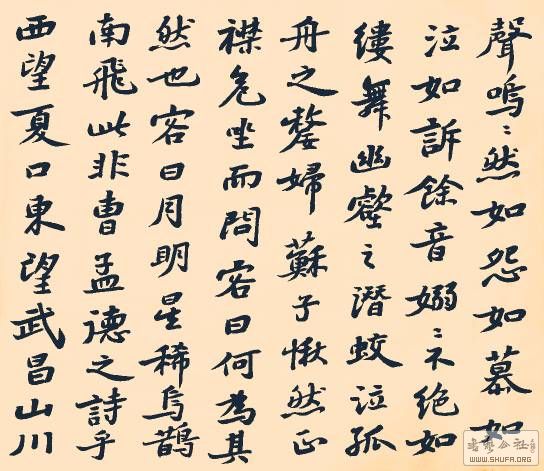 聲嗚〻然如怨如慕如
泣如訴餘音嫋〻不絕如
縷舞幽壑之潛蛟泣孤
舟之嫠婦蘇子愀然正
襟危坐而問客曰何為其
然也客曰月明星稀烏鵲
南飛此非曹孟德之詩乎
西望夏口東望武昌山川
WWW.SHUFA.ORG